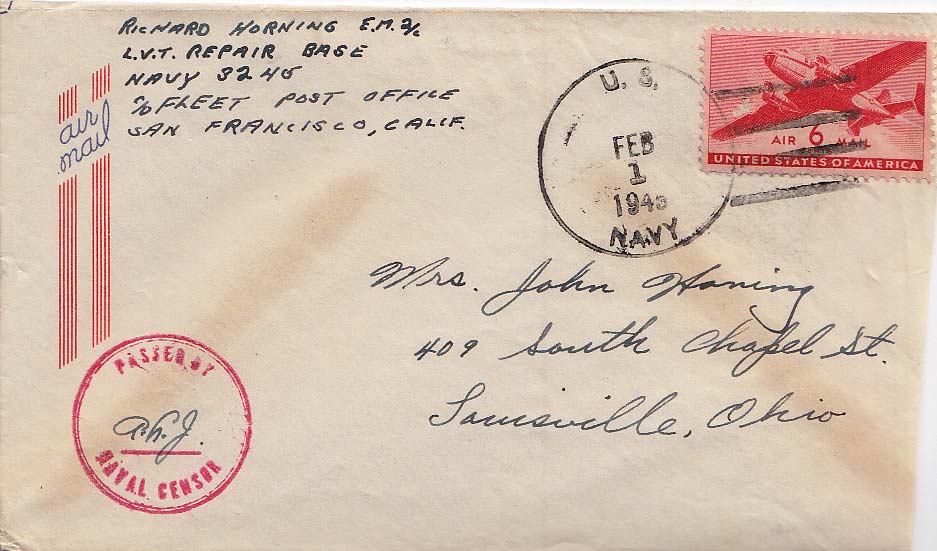 RICHARD HORNING E.M. 2/c
L.V.T. REPAIR BASE
NAVY 3245
c/o FLEET POST OFFICE
SAN FRANCISCO, CALIF.
air
mail
U. S.
FEB
1
1945
NAVY
AIR 6 MAIL
UNITED STATES OF AMERICA
Mrs. John Horning
409 South Chapel St.
Louisville, Ohio
PASSED BY
NAVAL CENSOR